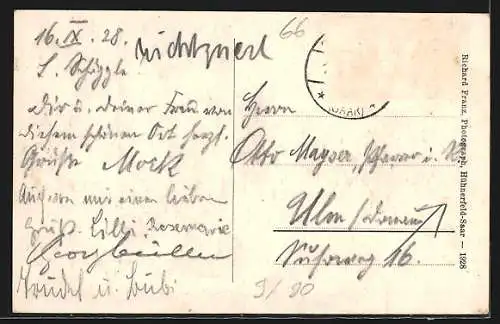 16. IX. 28.
L. Schiggle
Dir u. deiner Frau von
diesem schönen Ort herzl.
Grüße Mock
Auch von mir einen lieben
Gruß. Lilli Rosemarie
Trudel u. Bubi
66
(SAAR)
Herrn
Otto Mayser, Pfarrer i. R.
Ulm/Donau
Suhrweg 16.
9/90
Richard Franz, Photograph, Hühnerfeld-Saar — 1928